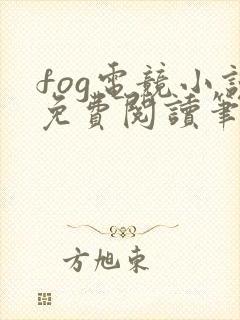 fog電競小說
免費閱讀筆
方旭東